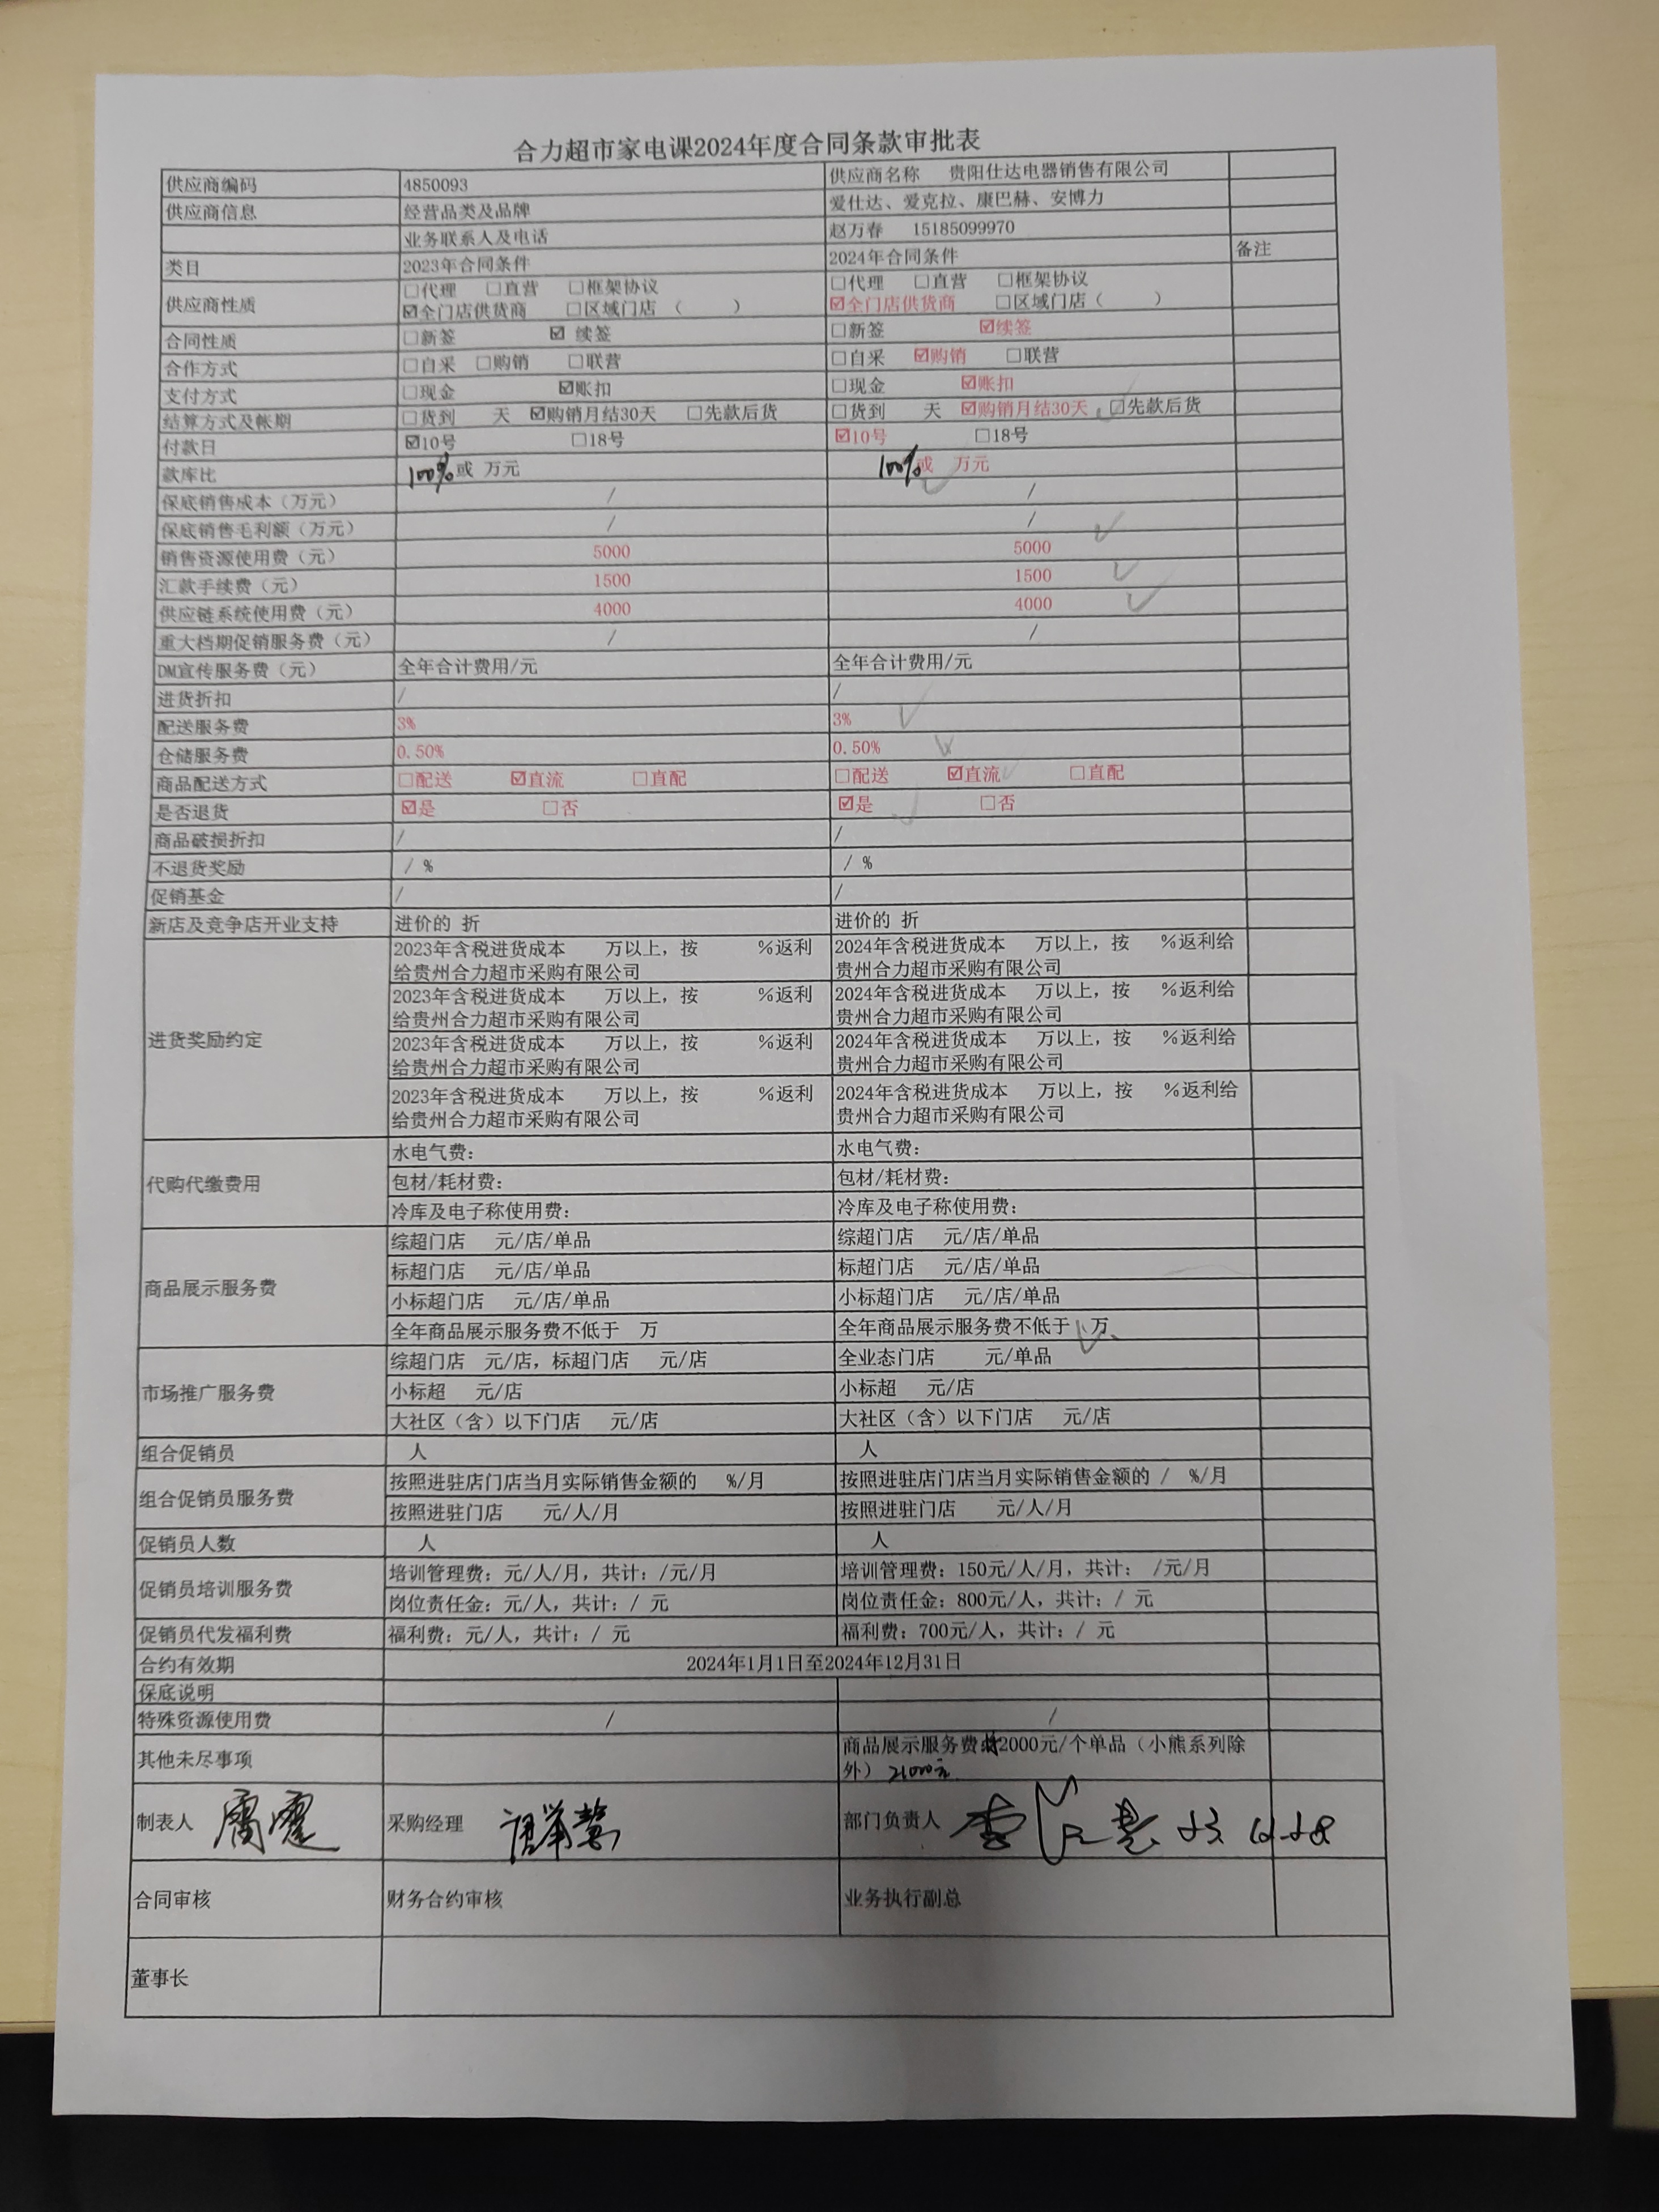 合力超市家电课2024年度合同条款审批表
供应商编码 4850093 供应商名称 贵阳仕达电器销售有限公司
供应商信息 经营品类及品牌 爱仕达、爱克拉、康巴赫、安博力
业务联系人及电话 赵万春 15185099970
类目 2023年合同条件 2024年合同条件 备注
供应商性质 □代理 □直营 □框架协议 □代理 □直营 □框架协议
☑全门店供货商 □区域门店（ ） ☑全门店供货商 □区域门店（ ）
合同性质 □新签 ☑ 续签 □新签 ☑续签
合作方式 □自采 □购销 □联营 □自采 ☑购销 □联营
支付方式 □现金 ☑账扣 □现金 ☑账扣
结算方式及帐期 □货到 天 ☑购销月结30天 □先款后货 □货到 天 ☑购销月结30天 □先款后货
付款日 ☑10号 □18号 ☑10号 □18号
款库比 100%或 万元 100%或 万元
保底销售成本（万元） / /
保底销售毛利额（万元） / /
销售资源使用费（元） 5000 5000
汇款手续费（元） 1500 1500
供应链系统使用费（元） 4000 4000
重大档期促销服务费（元） / /
DM宣传服务费（元） 全年合计费用/元 全年合计费用/元
进货折扣 / /
配送服务费 3% 3%
仓储服务费 0.50% 0.50%
商品配送方式 □配送 ☑直流 □直配 □配送 ☑直流 □直配
是否退货 ☑是 □否 ☑是 □否
商品破损折扣 / /
不退货奖励 / % / %
促销基金 / /
新店及竞争店开业支持 进价的 折 进价的 折
进货奖励约定
2023年含税进货成本 万以上，按 %返利 2024年含税进货成本 万以上，按 %返利给
给贵州合力超市采购有限公司 贵州合力超市采购有限公司
2023年含税进货成本 万以上，按 %返利 2024年含税进货成本 万以上，按 %返利给
给贵州合力超市采购有限公司 贵州合力超市采购有限公司
2023年含税进货成本 万以上，按 %返利 2024年含税进货成本 万以上，按 %返利给
给贵州合力超市采购有限公司 贵州合力超市采购有限公司
2023年含税进货成本 万以上，按 %返利 2024年含税进货成本 万以上，按 %返利给
给贵州合力超市采购有限公司 贵州合力超市采购有限公司
代购代缴费用
水电气费： 水电气费：
包材/耗材费： 包材/耗材费：
冷库及电子称使用费： 冷库及电子称使用费：
商品展示服务费
综超门店 元/店/单品 综超门店 元/店/单品
标超门店 元/店/单品 标超门店 元/店/单品
小标超门店 元/店/单品 小标超门店 元/店/单品
全年商品展示服务费不低于 万 全年商品展示服务费不低于 万
市场推广服务费
综超门店 元/店，标超门店 元/店 全业态门店 元/单品
小标超 元/店 小标超 元/店
大社区（含）以下门店 元/店 大社区（含）以下门店 元/店
组合促销员 人 人
组合促销员服务费
按照进驻店门店当月实际销售金额的 %/月 按照进驻店门店当月实际销售金额的 / %/月
按照进驻门店 元/人/月 按照进驻门店 元/人/月
促销员人数 人 人
促销员培训服务费
培训管理费：元/人/月，共计：/元/月 培训管理费：150元/人/月，共计： /元/月
岗位责任金：元/人，共计：/ 元 岗位责任金：800元/人，共计：/ 元
促销员代发福利费 福利费：元/人，共计：/ 元 福利费：700元/人，共计：/ 元
合约有效期 2024年1月1日至2024年12月31日
保底说明
特殊资源使用费 / /
其他未尽事项 商品展示服务费 2000元/个单品（小熊系列除
外）21000元
制表人 采购经理 部门负责人
合同审核 财务合约审核 业务执行副总
董事长